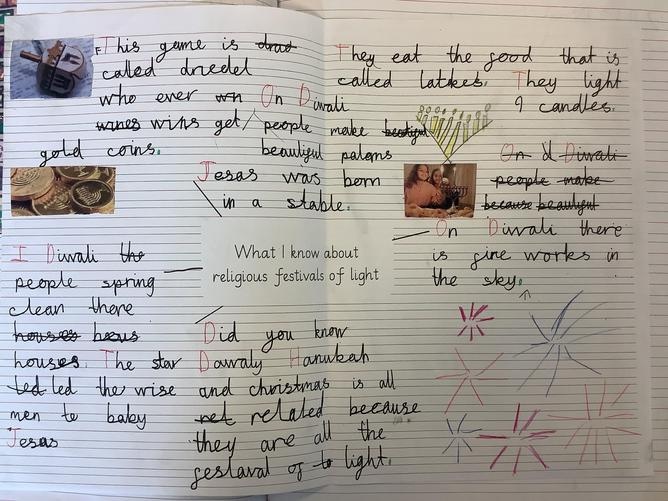 This game is
called driedel
who ever wn
wines wins get
gold coins.
On Diwali
people make beatiful
beauliful patons
Jesas was born
in a stable.
They eat the food that is
called latkes. They light
9 candles.
On d Diwali
people make
because beautiful
On Diwali there
is fire works in
the sky.
What I know about
religious festivals of light
I Diwali the
people spring
clean there
houses
houses. The star
ted led the wise
men to baby
Jesas
Did you know
Dawaly Hanukah
and christmas is all
related because
they are all the
feslaval of to light.